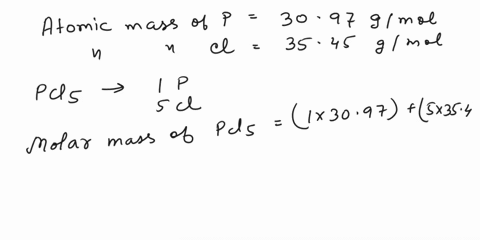 Atomic mass of P = 30.97 g/mol
" " Cl = 35.45 g/mol
PCl5 → 1 P
5 Cl
Molar mass of PCl5 = (1×30.97) + (5×35.4